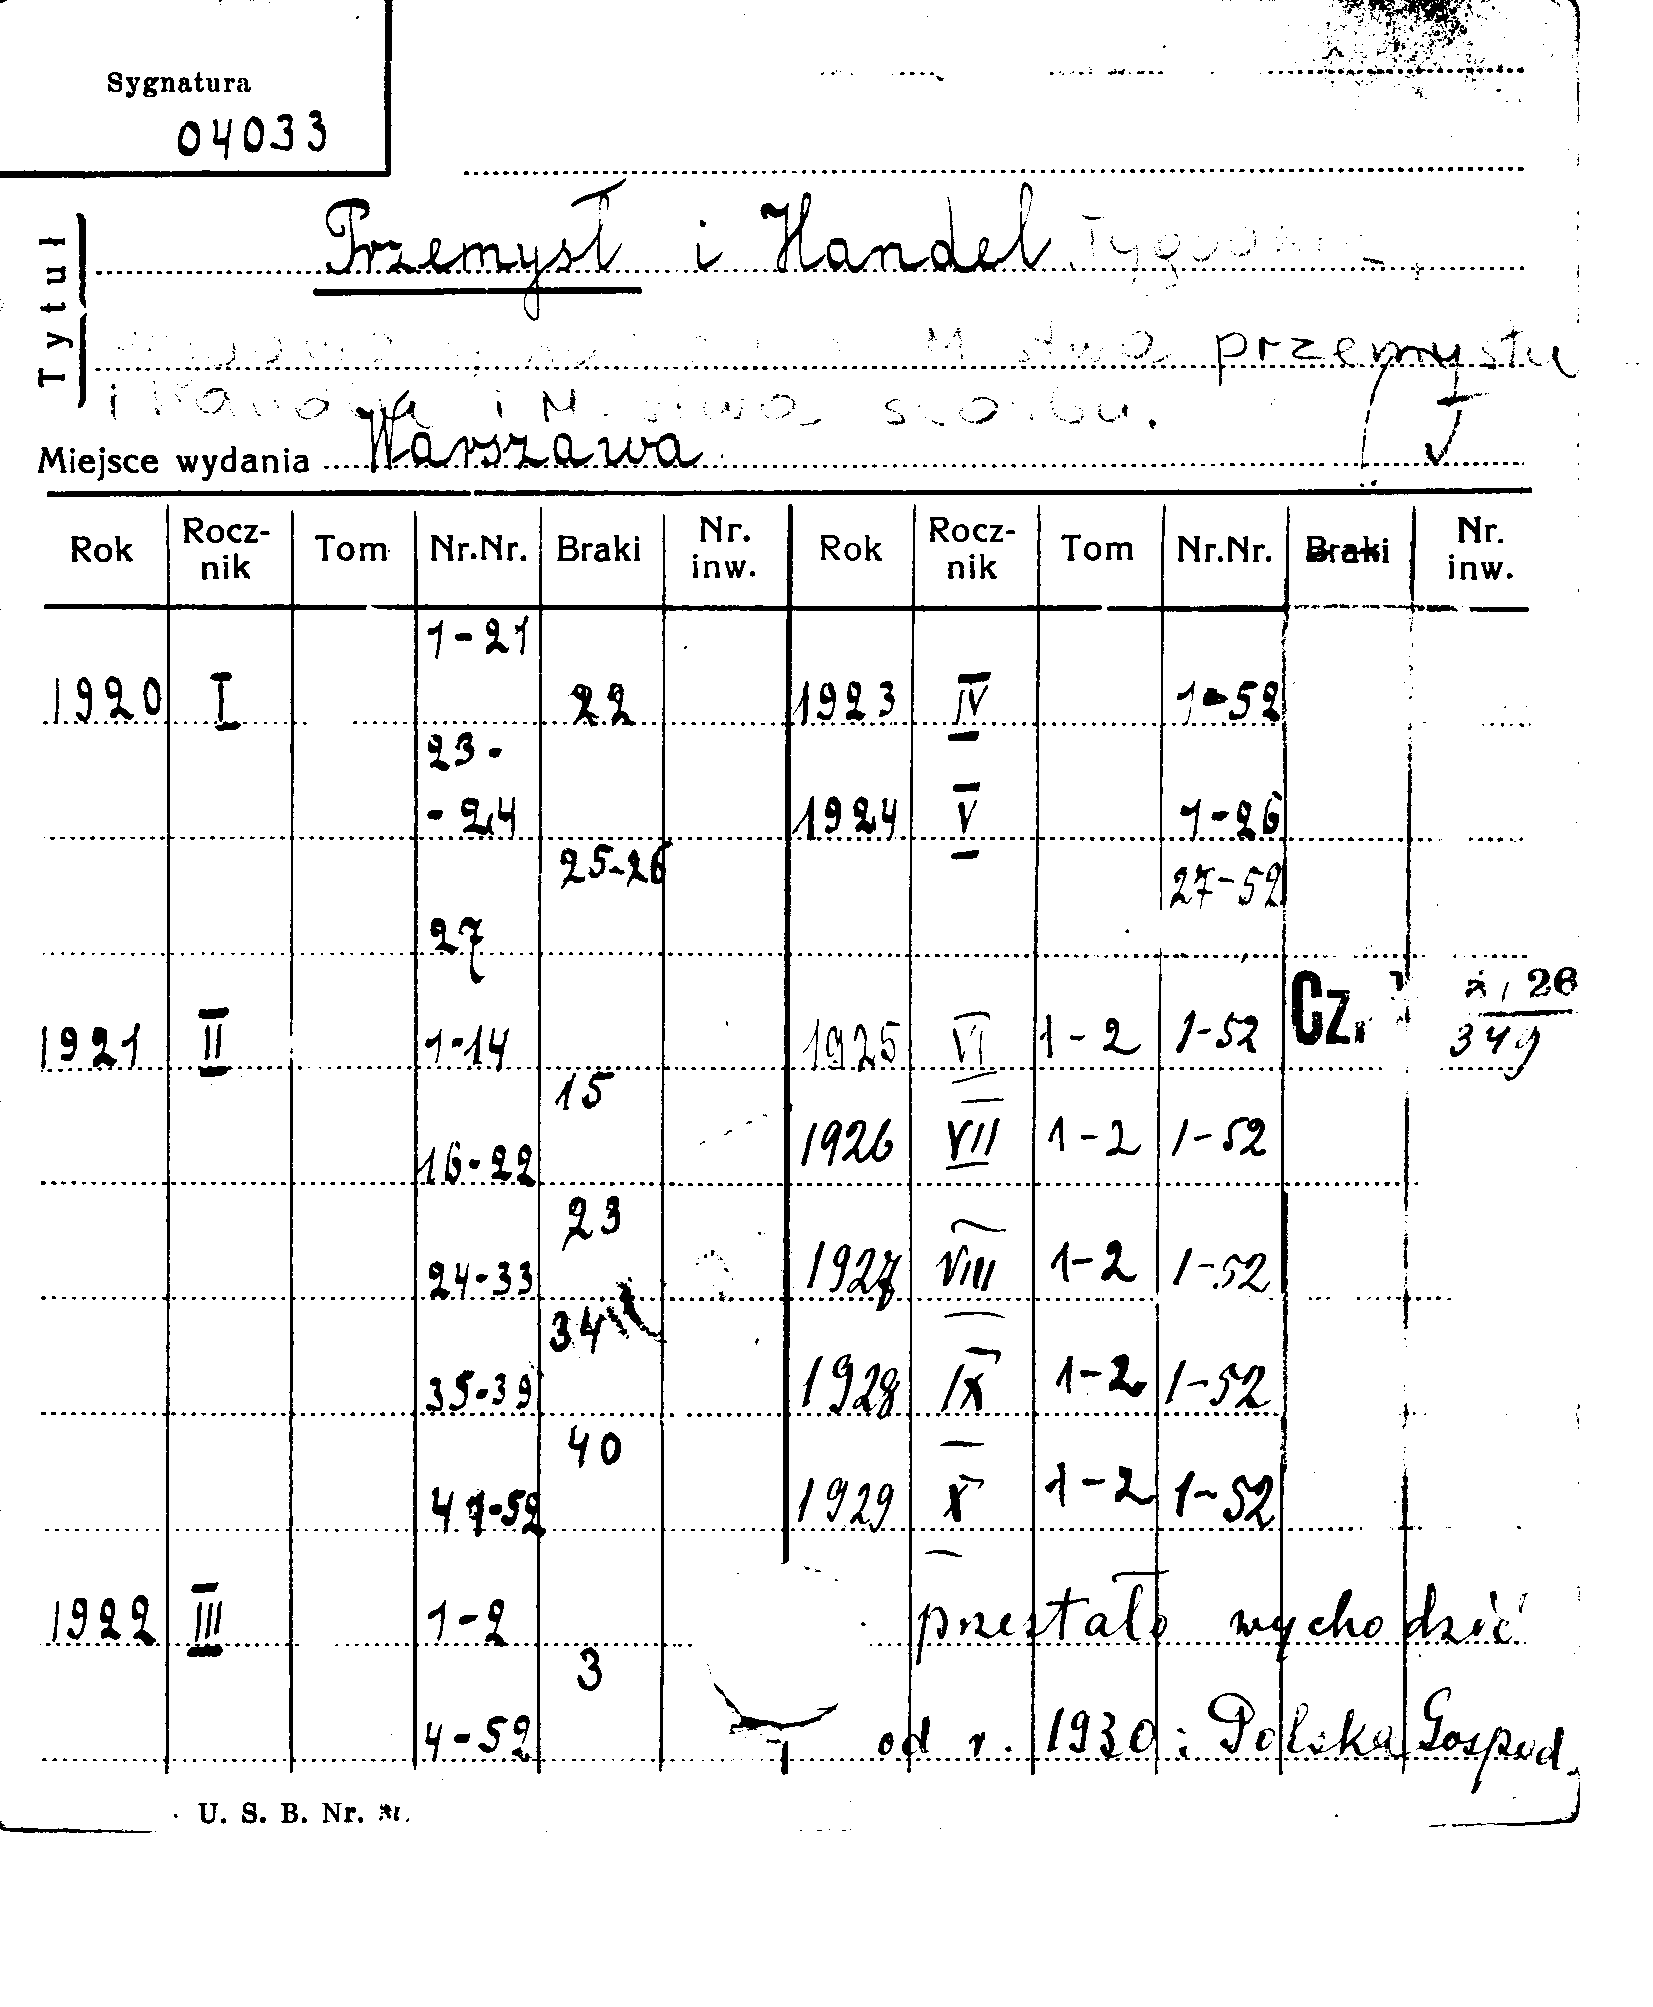 Sygnatura
04033
Tytuł
Przemysł i Handel
M stwa przemysłu
i Handlu i M. stwa skarbu.
Miejsce wydania Warszawa
Rok Rocz-nik Tom Nr.Nr. Braki Nr. inw. Rok Rocz-nik Tom Nr.Nr. Braki Nr. inw.
1-21
1920 I 22 1923 IV 1-52
23-
-24 1924 V 1-26
25-26 27-52
27
Cz. 26
1921 II 1-14 1925 VI 1-2 1-52 349
15
16-22 1926 VII 1-2 1-52
23
24-33 1927 VIII 1-2 1-52
34
35-39 1928 IX 1-2 1-52
40
41-52 1929 X 1-2 1-52
1922 III 1-2 przestało wychodzić
3
4-52 od r. 1930: Polska Gospod.
U. S. B. Nr.